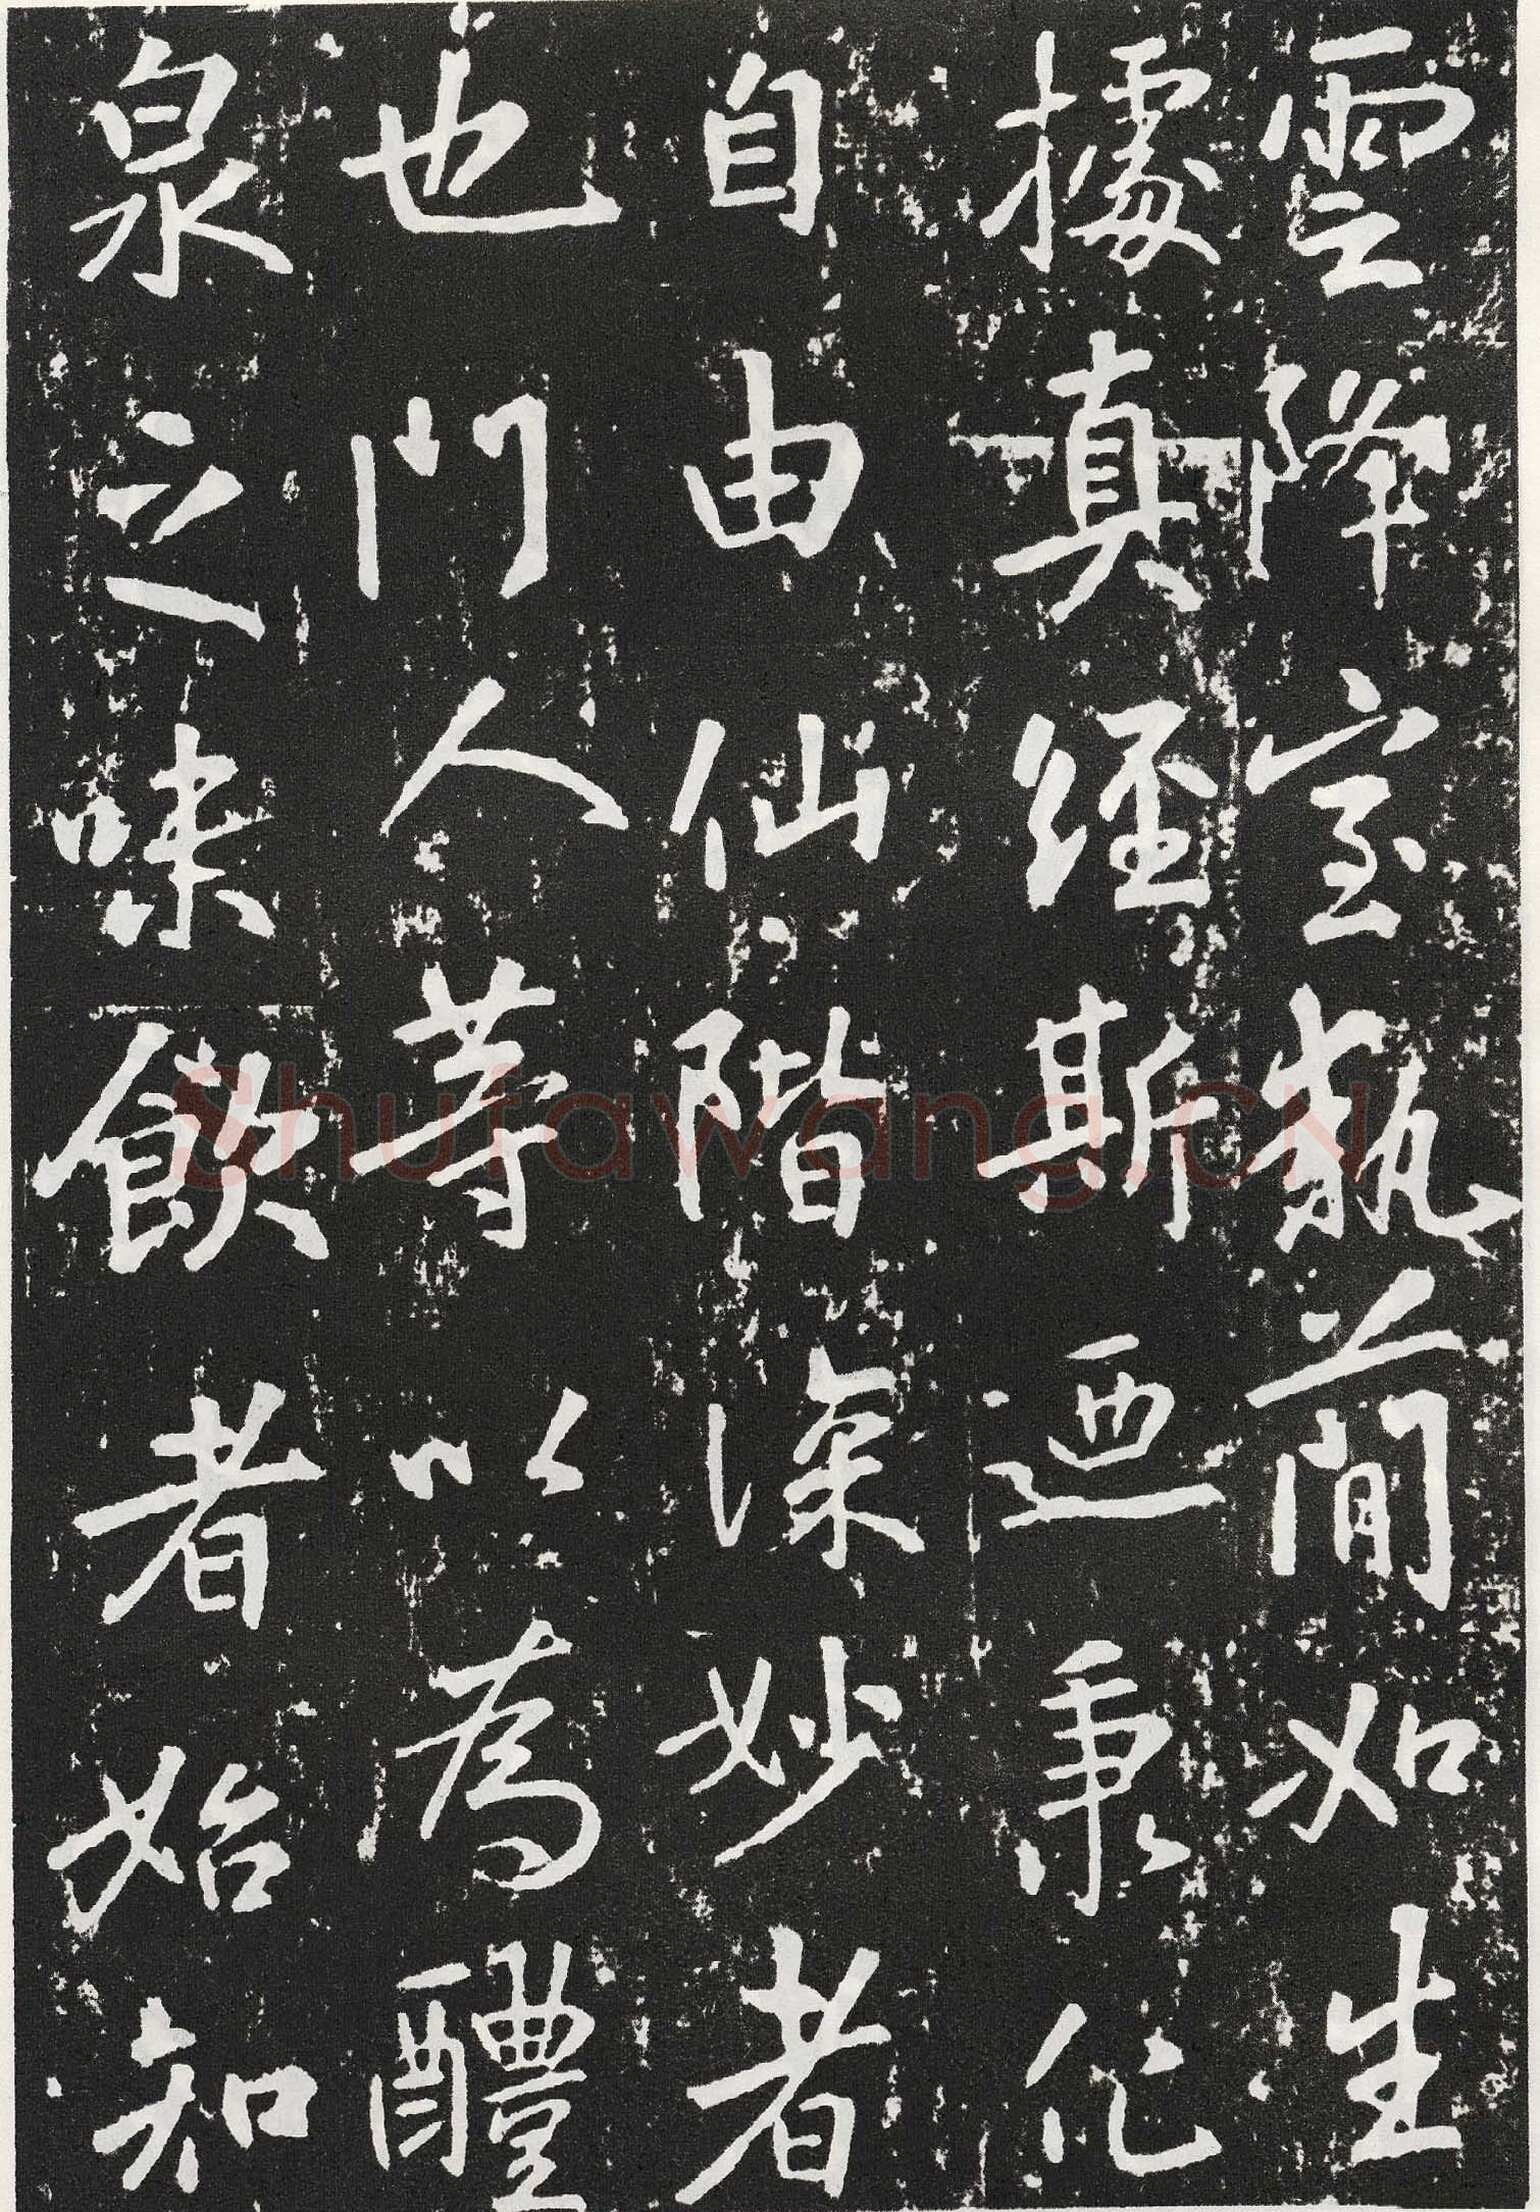 雲降室執蕳如生
據真經斯迺秉化
自由仙階深妙者
也門人等以為醴
泉之味飲者始知
Shufawang.CN